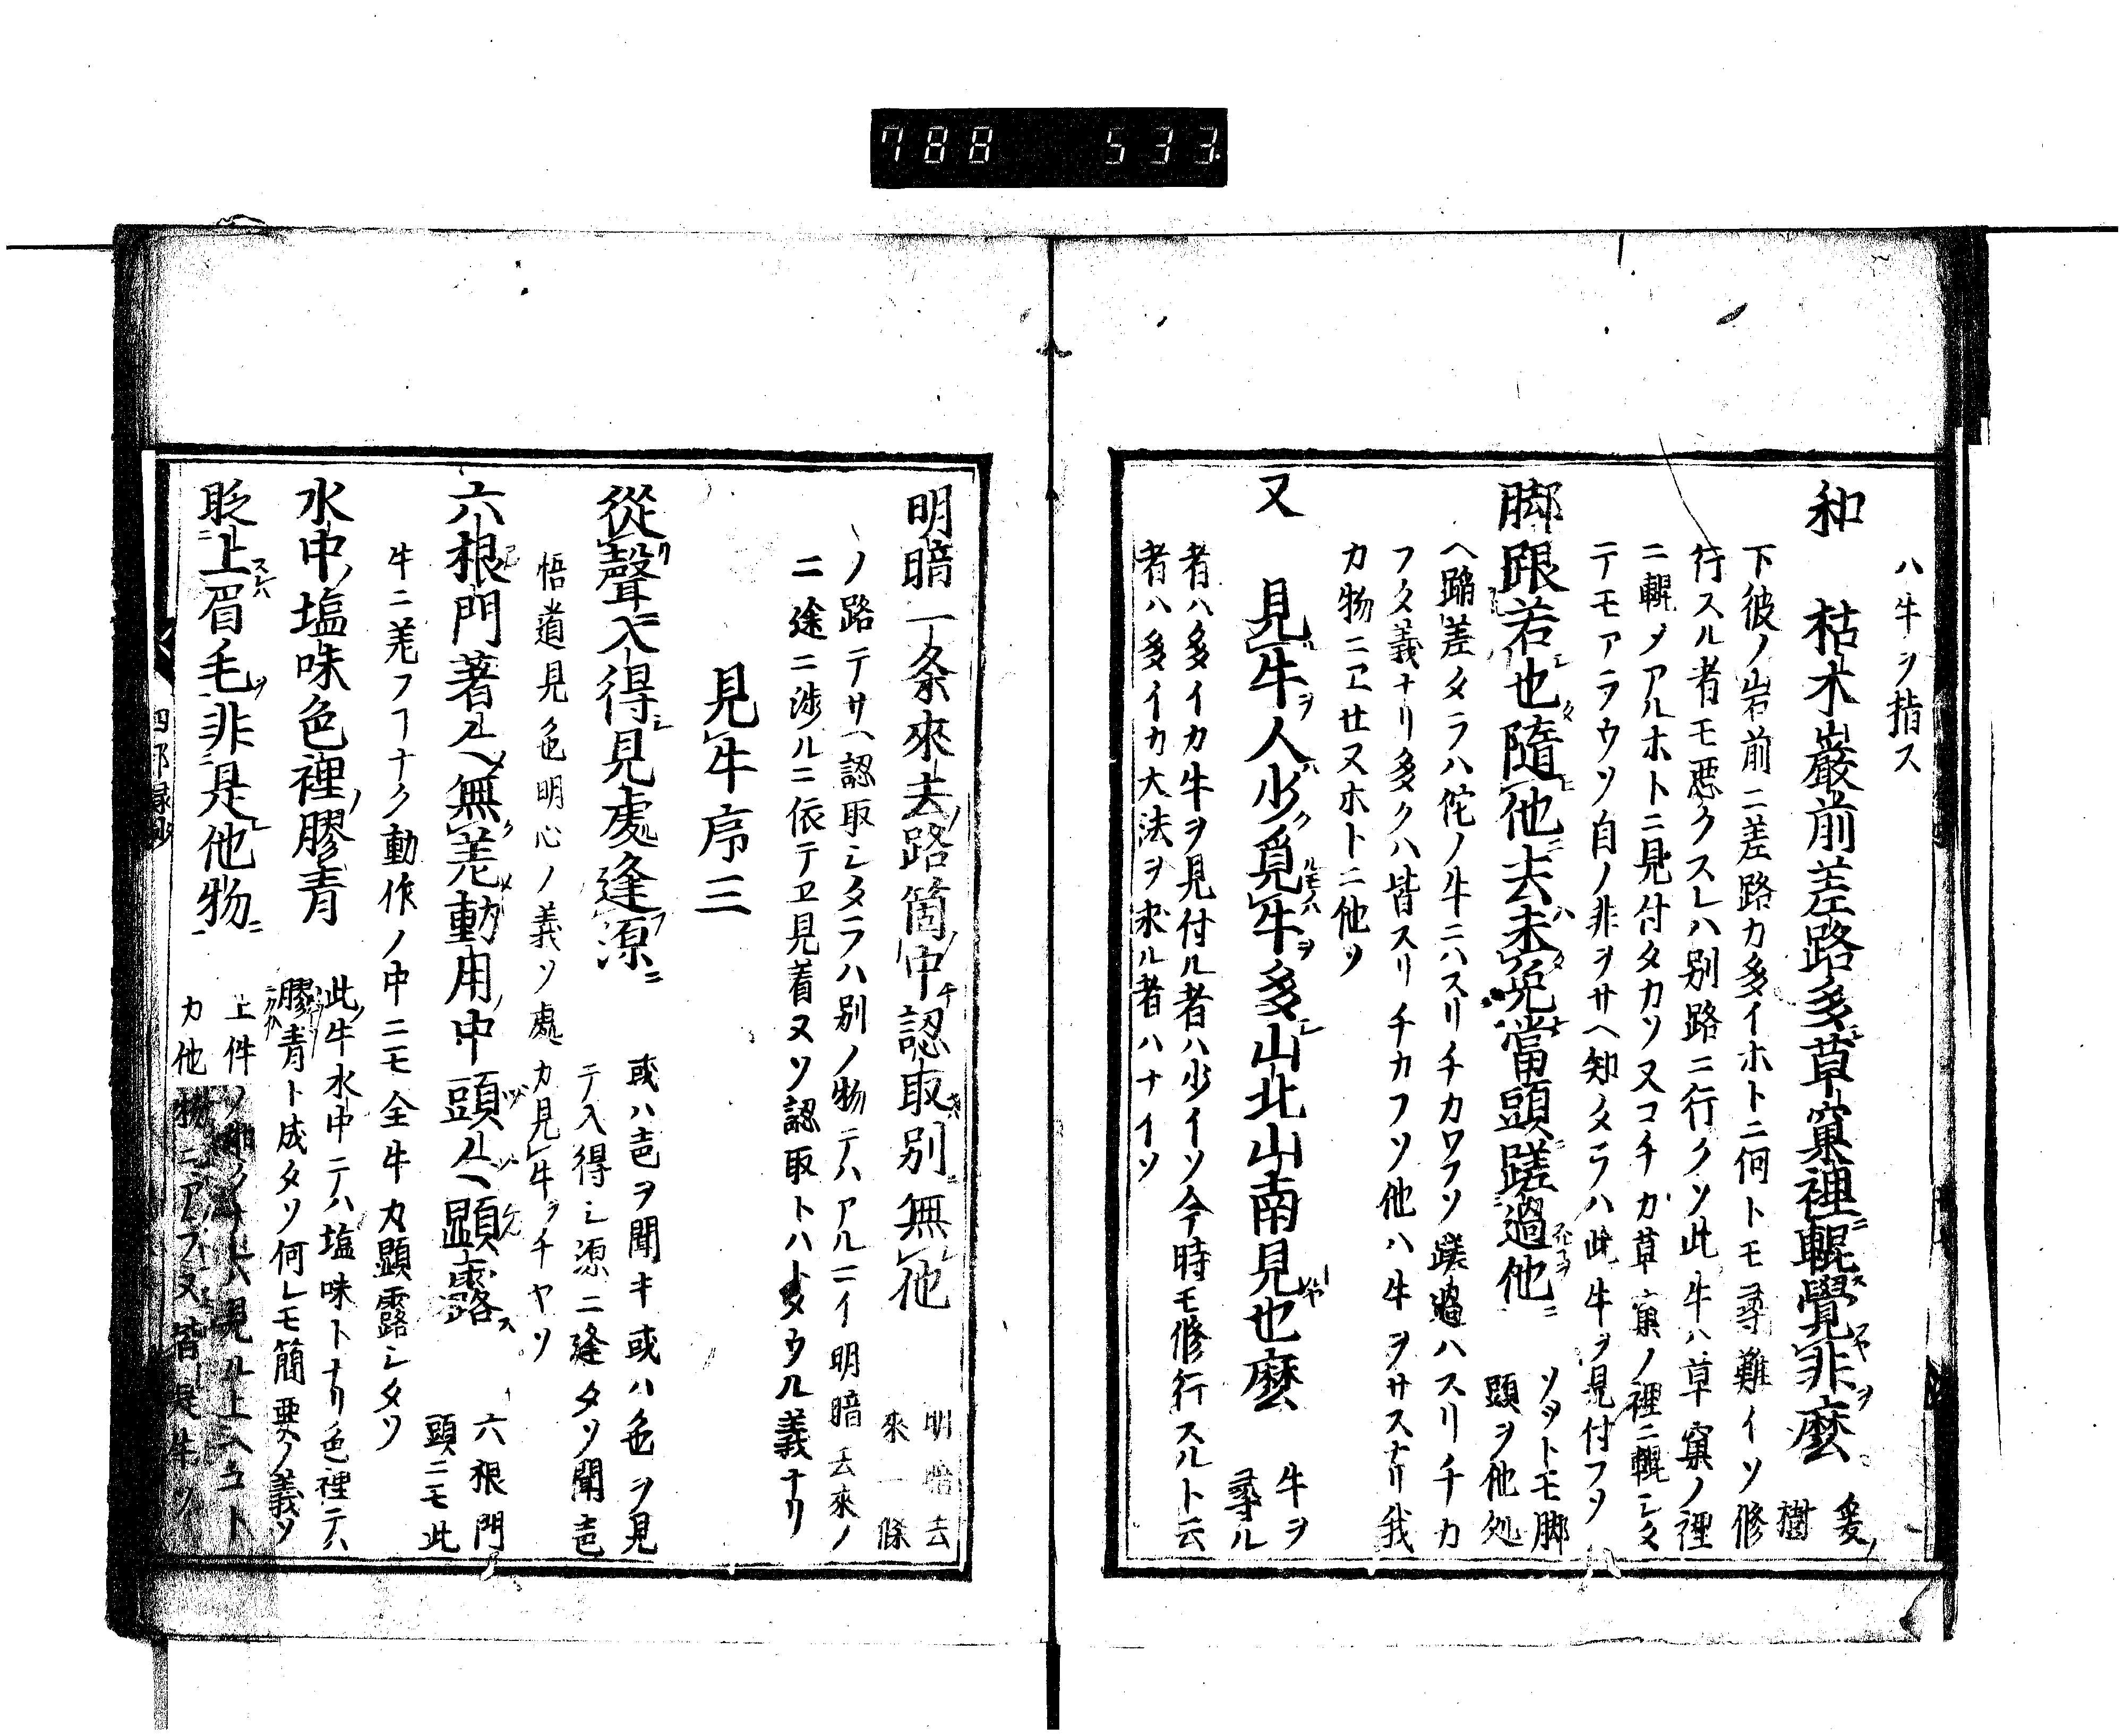 788 533
ハ牛ヲ指ス
和 枯木巖前差路多草窠裡輥覺非麼
爰ノ樹
下彼ノ岩前ニ差路カ多イホトニ何トモ尋難イソ修
行スル者モ悪クスレハ別路ニ行クソ此牛ハ草窠ノ裡
ニ輥メアルホトニ見付タカソ又コチガ草窠ノ裡ニ輥シタ
テモアラウソ自ノ非ヲサヘ知タラハ此牛ヲ見付フソ
脚跟若也隨他去未免當頭蹉過他
ソットモ脚
頭ヲ他処
ヘ踊差タラハ佗ノ牛ニハスリチカワフソ蹉過ハスリチカ
フタ義ナリ多クハ皆スリチカフソ他ハ牛ヲサスナリ我
カ物ニヱセヌホトニ他ソ
又 見牛人少覓牛多山北山南見也麼
牛ヲ
尋ル
者ハ多イカ牛ヲ見付ル者ハ少イソ今時モ修行スルト云
者ハ多イカ大法ヲ求ル者ハナイソ
明暗一条來去路箇中認取別無他
明暗去
來一條
ノ路テサヘ認取シタラハ別ノ物テハアルニイ明暗去來ノ
二途ニ渉ルニ依テヱ見着ヌソ認取トハトタウル義ナリ
見牛序三
從聲入得見處逢源
或ハ声ヲ聞キ或ハ色ヲ見
テ入得シ源ニ逢タソ聞声
悟道見色明心ノ義ソ處カ見牛ヲチヤソ
六根門著々無差動用中頭々顯露
六根門
頭ニモ此
牛ニ差フヿナク動作ノ中ニモ全牛カ顯露シタソ
水中塩味色裡膠青
此牛水中テハ塩味トナリ色裡テハ
膠青ト成タソ何レモ簡要ノ義ソ
眨上眉毛非是他物
上件ノ如クナレハ見ル上ヘヱト
カ他物ニアラフヌ皆是牛ソ
四部録鈔